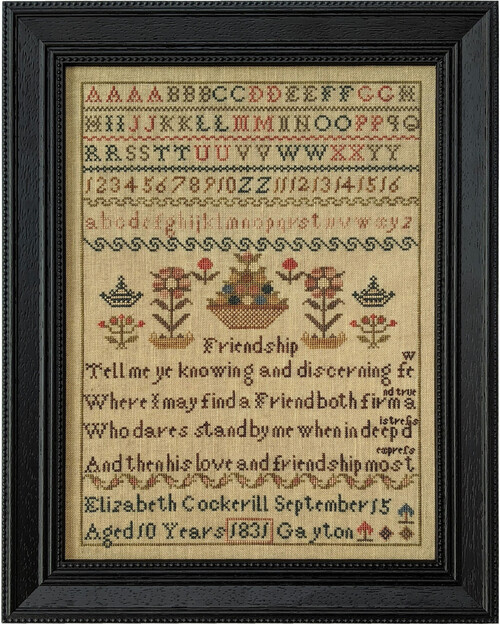 AAAABBBCCDDEEFFGGH
HIIJJKKLLMMNNOOPPQQ
RRSSTTUUVVWWXXYY
12345678910ZZ111213141516
abcdefghijklmnopqrstuvwxyz
Friendship
Tell me ye knowing and discerning few
Where I may find a Friend both firm and true
Who dares stand by me when in deep distress
And then his love and friendship most express
Elizabeth Cockerill September 15
Aged 10 Years 1831 Gayton